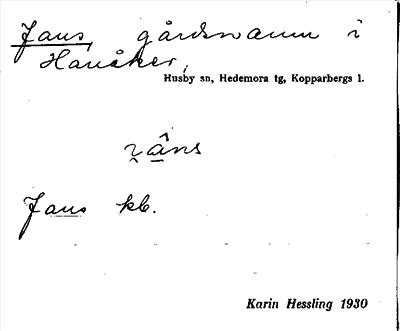 Jans, gårdsnamn i
Hanåker,
Husby sn, Hedemora tg, Kopparbergs l.
Jans kb.
Karin Hessling 1930